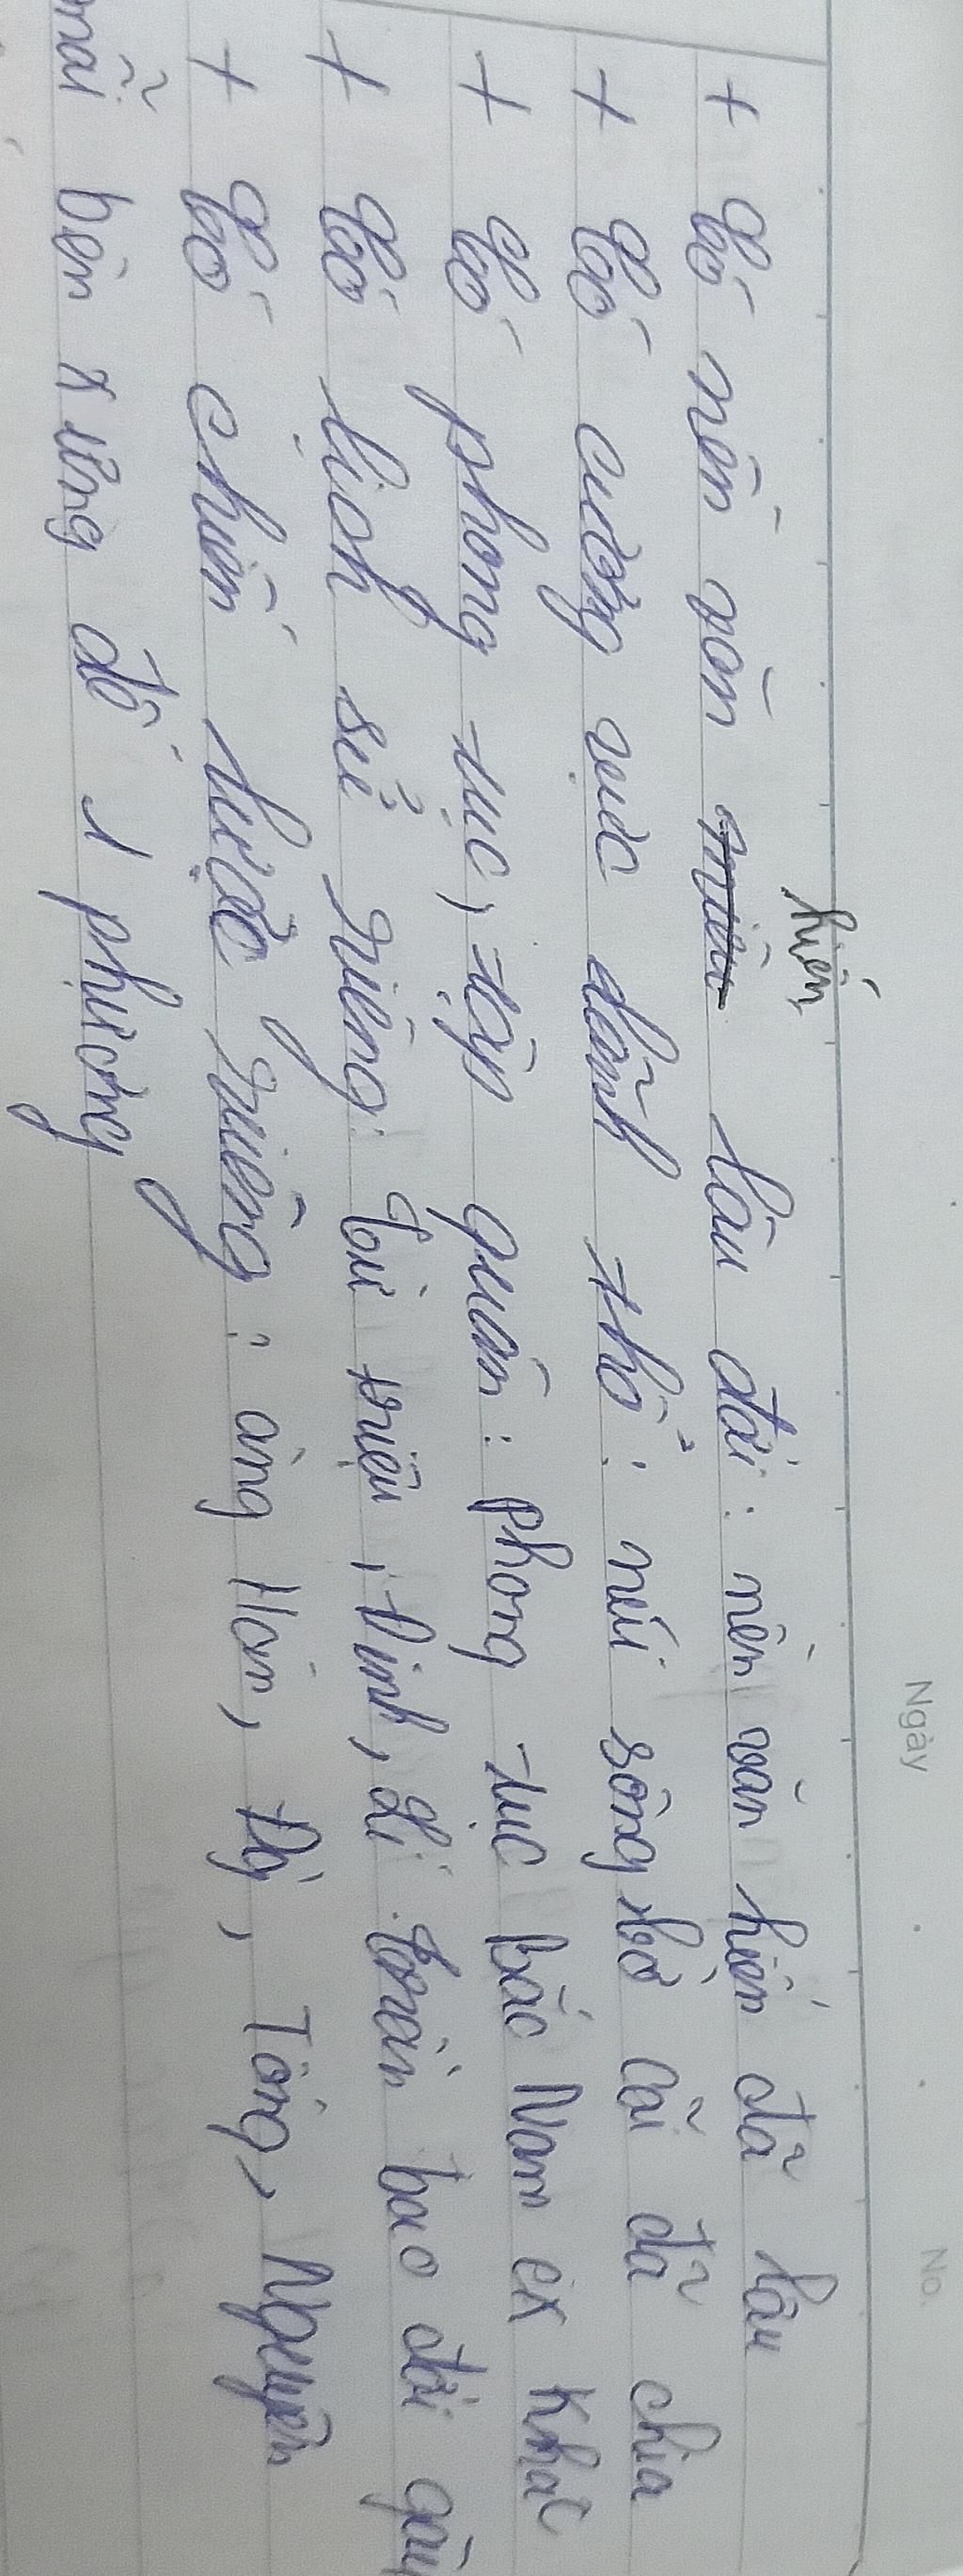 Ngày No.
hiến
+ Có nền văn miền lâu đời: nền văn hiến đã lâu
+ Có cương vực lãnh thổ: núi sông bờ cõi đã chia
+ Có phong tục, tập quán: phong tục bắc Nam cx khác
+ Có lịch sử riêng: Từ triệu, Đinh, Lí Trần bao đời gây
+ Có chiến lược riêng: cùng Hán, Đg, Tống, Nguyên
mỗi bên xưng đế 1 phương